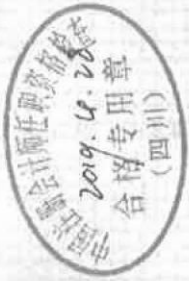 中国注册会计师任职资格检查
2019.4.28
合格专用章
（四川）